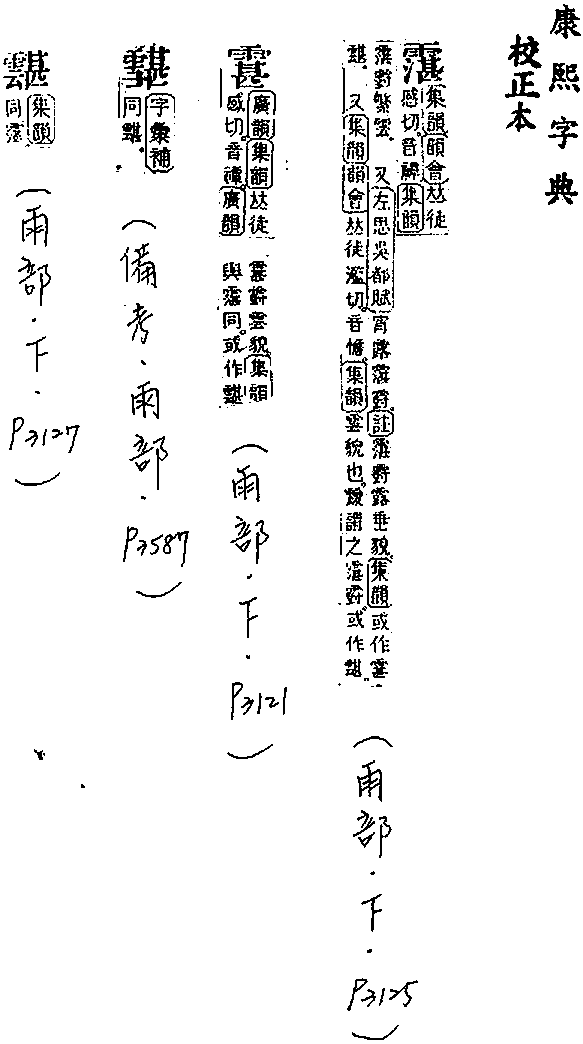 康熙字典
校正本
霮
集韻韻會𠀤徒
感切音禫集韻
霮䨴繁雲 又左思吳都賦宵露霮䨴註霮䨴露垂貌集韻或作
又集韻韻會𠀤徒濫切音憺集韻雲貌也或謂之霮䨴或作
(雨部.下.P3125)
廣韻集韻𠀤徒
感切音禫廣韻
䨴雲貌集韻
與霮同或作
(雨部.下.P3121)
字彙補
同
(備考.雨部.P3587)
集韻
同霮
(雨部.下.P3127)